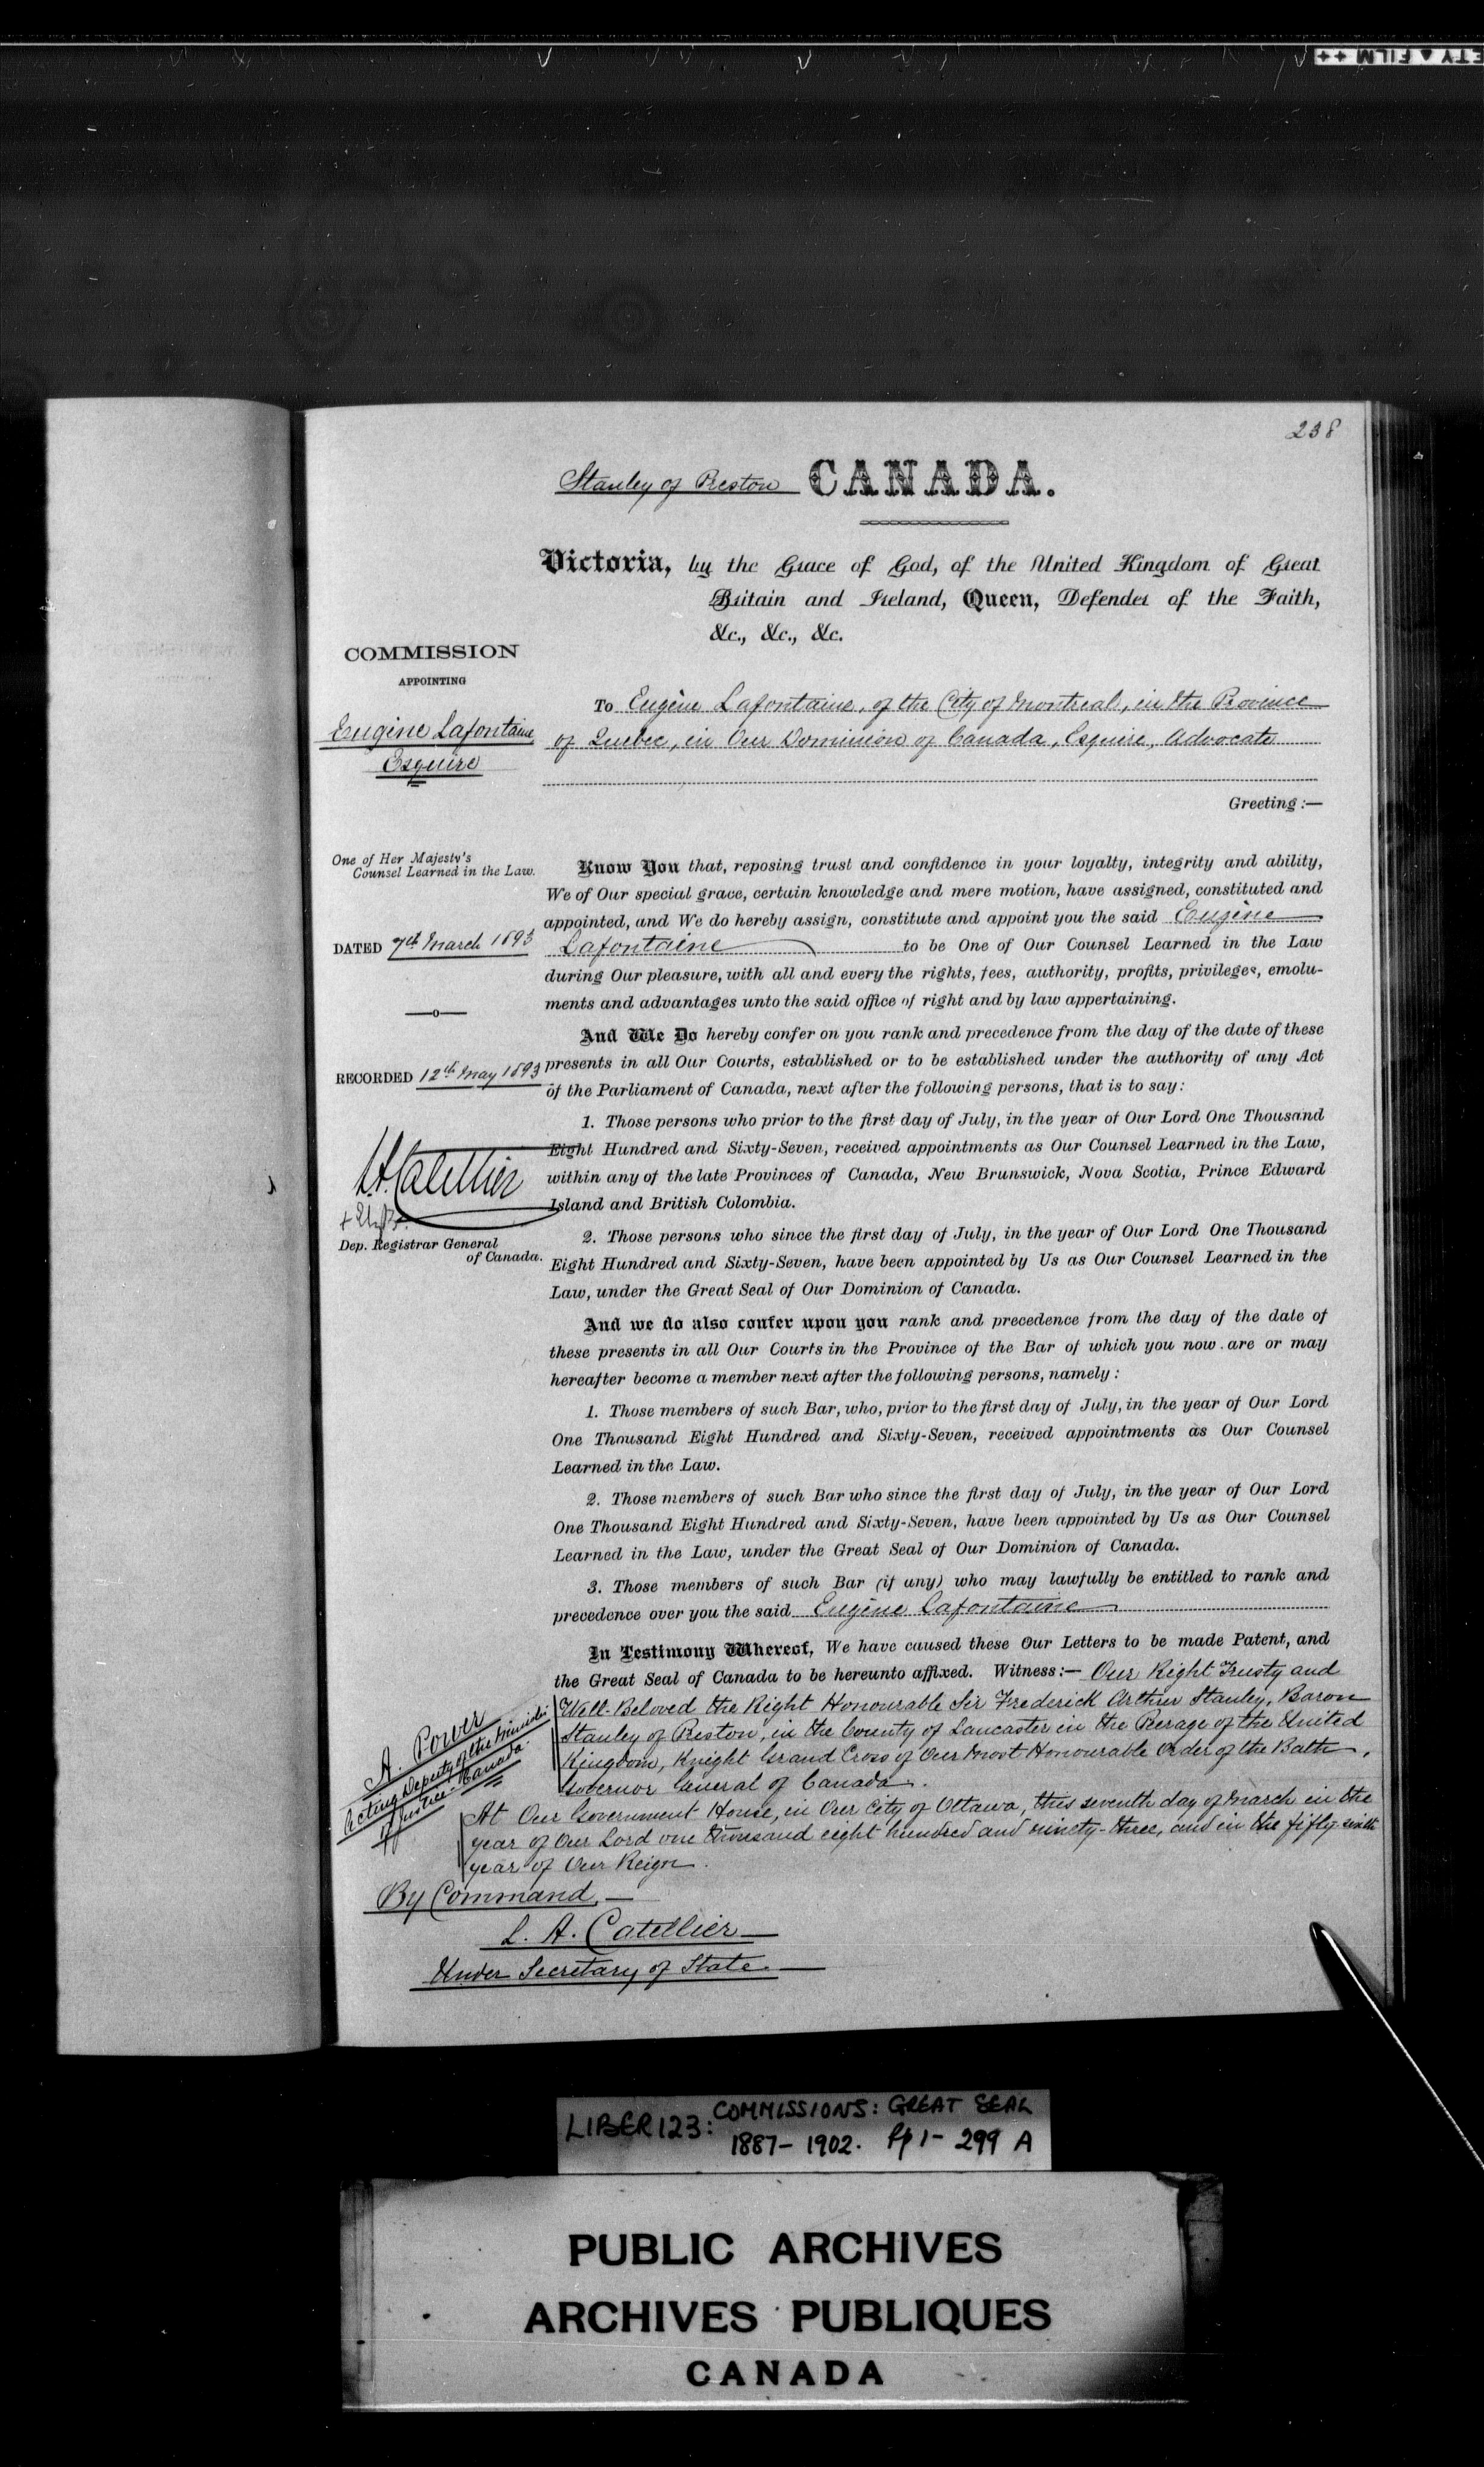 ETY ▲ FILM ++
238
Stanley of Preston CANADA.
Victoria, by the Grace of God, of the United Kingdom of Great
Britain and Ireland, Queen, Defender of the Faith,
&c., &c., &c.
COMMISSION
APPOINTING
Eugène Lafontaine
Esquire
To Eugène Lafontaine, of the City of Montreal, in the Province
of Quebec, in Our Dominion of Canada, Esquire, Advocate
Greeting :—
One of Her Majesty's
Counsel Learned in the Law.
DATED 7th March 1893
RECORDED 12th May 1893
L.A. Catellier
Dep. Registrar General
of Canada.
Know You that, reposing trust and confidence in your loyalty, integrity and ability,
We of Our special grace, certain knowledge and mere motion, have assigned, constituted and
appointed, and We do hereby assign, constitute and appoint you the said Eugène
Lafontaine to be One of Our Counsel Learned in the Law
during Our pleasure, with all and every the rights, fees, authority, profits, privileges, emolu-
ments and advantages unto the said office of right and by law appertaining.
And We Do hereby confer on you rank and precedence from the day of the date of these
presents in all Our Courts, established or to be established under the authority of any Act
of the Parliament of Canada, next after the following persons, that is to say:
1. Those persons who prior to the first day of July, in the year of Our Lord One Thousand
Eight Hundred and Sixty-Seven, received appointments as Our Counsel Learned in the Law,
within any of the late Provinces of Canada, New Brunswick, Nova Scotia, Prince Edward
Island and British Colombia.
2. Those persons who since the first day of July, in the year of Our Lord One Thousand
Eight Hundred and Sixty-Seven, have been appointed by Us as Our Counsel Learned in the
Law, under the Great Seal of Our Dominion of Canada.
And we do also confer upon you rank and precedence from the day of the date of
these presents in all Our Courts in the Province of the Bar of which you now are or may
hereafter become a member next after the following persons, namely :
1. Those members of such Bar, who, prior to the first day of July, in the year of Our Lord
One Thousand Eight Hundred and Sixty-Seven, received appointments as Our Counsel
Learned in the Law.
2. Those members of such Bar who since the first day of July, in the year of Our Lord
One Thousand Eight Hundred and Sixty-Seven, have been appointed by Us as Our Counsel
Learned in the Law, under the Great Seal of Our Dominion of Canada.
3. Those members of such Bar (if any) who may lawfully be entitled to rank and
precedence over you the said Eugène Lafontaine
In Testimony Whereof, We have caused these Our Letters to be made Patent, and
the Great Seal of Canada to be hereunto affixed. Witness:— Our Right Trusty and
Well-Beloved the Right Honourable Sir Frederick Arthur Stanley, Baron
Stanley of Preston, in the County of Lancaster in the Peerage of the United
Kingdom, Knight Grand Cross of Our Most Honourable Order of the Bath,
Governor General of Canada.
A. Power
Acting Deputy of the Minister
of Justice Canada.
At Our Government House, in Our City of Ottawa, this seventh day of March in the
year of Our Lord one thousand eight hundred and ninety-three, and in the fifty-sixth
year of Our Reign.
By Command,
L. A. Catellier
Under Secretary of State.
LIBER 123: COMMISSIONS: GREAT SEAL
1887 - 1902. Pp 1 - 299 A
PUBLIC ARCHIVES
ARCHIVES PUBLIQUES
CANADA